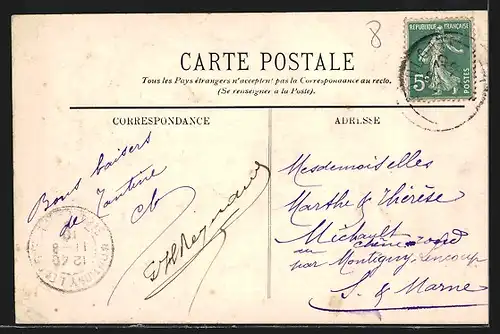 8
RÉPUBLIQUE FRANÇAISE
5c
POSTES
CARTE POSTALE
Tous les Pays étrangers n'acceptent pas la Correspondance au recto.
(Se renseigner à la Poste).
CORRESPONDANCE
Bons baisers
de Tantine
cb
ADRESSE
Mesdemoiselles
Marthe & Thérèse
Méchault
au chêne rond
par Montigny Lencoup
S. & Marne
11 - 8
12 40